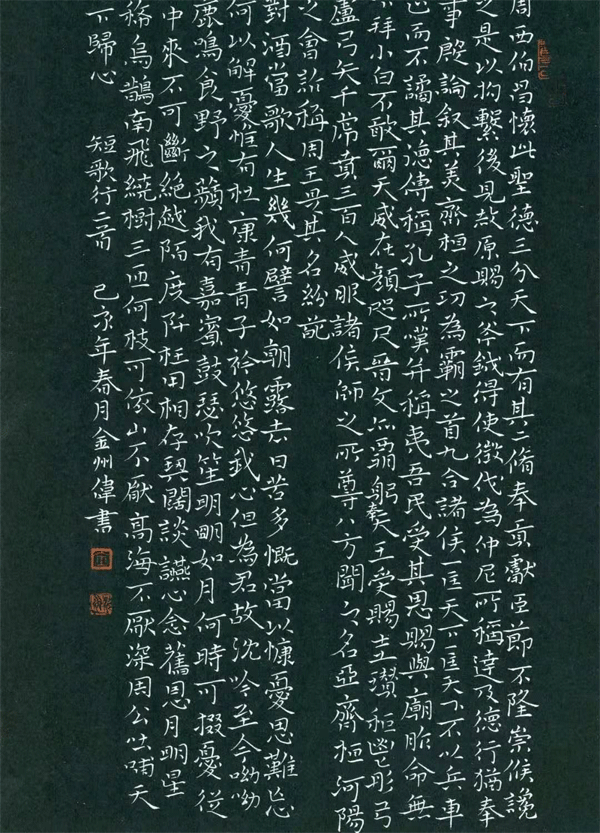 周西伯昌懷此聖德三分天下而有其二脩奉貢獻臣節不隆崇侯讒
之是以拘繫後見赦原賜之斧鉞得使徵伐為仲尼所稱達及德行猶奉
事殷論叙其美齊桓之功為霸之首九合諸侯一匡天下一匡天下不以兵車
正而不譎其德傳稱孔子所嘆并稱夷吾民受其恩賜與廟胙命無
下拜小白不敢爾天威在顏咫尺晉文亦霸躬奉天王受賜圭瓚秬鬯彤弓
盧弓矢千虎賁三百人威服諸侯師之所尊八方聞之名亞齊桓河陽
之會詐稱周王是其名紛葩
對酒當歌人生幾何譬如朝露去日苦多慨當以慷憂思難忘
何以解憂惟有杜康青青子衿悠悠我心但為君故沈吟至今呦呦
鹿鳴食野之蘋我有嘉賓鼓瑟吹笙明明如月何時可掇憂從
中來不可斷絕越陌度阡枉用相存契闊談讌心念舊恩月明星
稀烏鵲南飛繞樹三匝何枝可依山不厭高海不厭深周公吐哺天
下歸心 短歌行二首 己亥年春月金州偉書